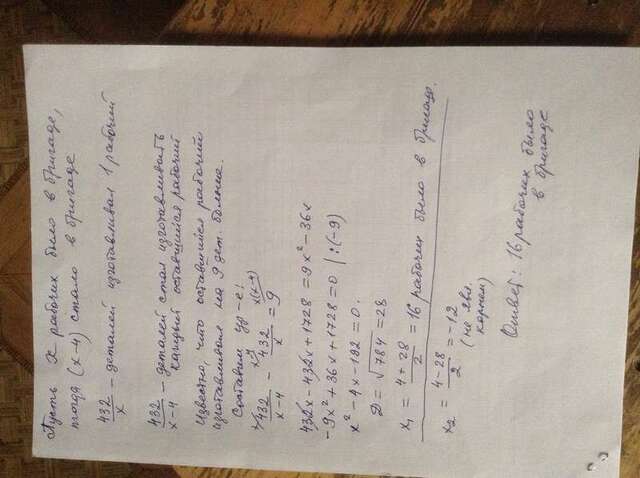 Пусть X рабочих было в бригаде,
тогда (x-4) стало в бригаде
432/x - деталей изготавливал 1 рабочий
432/x-4 - деталей стал изготавливать
каждый оставшийся рабочий
Известно, что оставшийся рабочий
изготавливал на 9 дет. больше.
Составим ур-е:
x/ 432/x-4 - x-4/ 432/x = x(x-4)/ 9
432x - 432x + 1728 = 9x² - 36x
-9x² + 36x + 1728 = 0 | :(-9)
x² - 4x - 192 = 0.
D = √784 = 28
x₁ = 4+28/2 = 16 рабочих было в бригаде.
x₂ = 4-28/2 = -12
(не явл.
корнем)
Ответ: 16 рабочих было
в бригаде